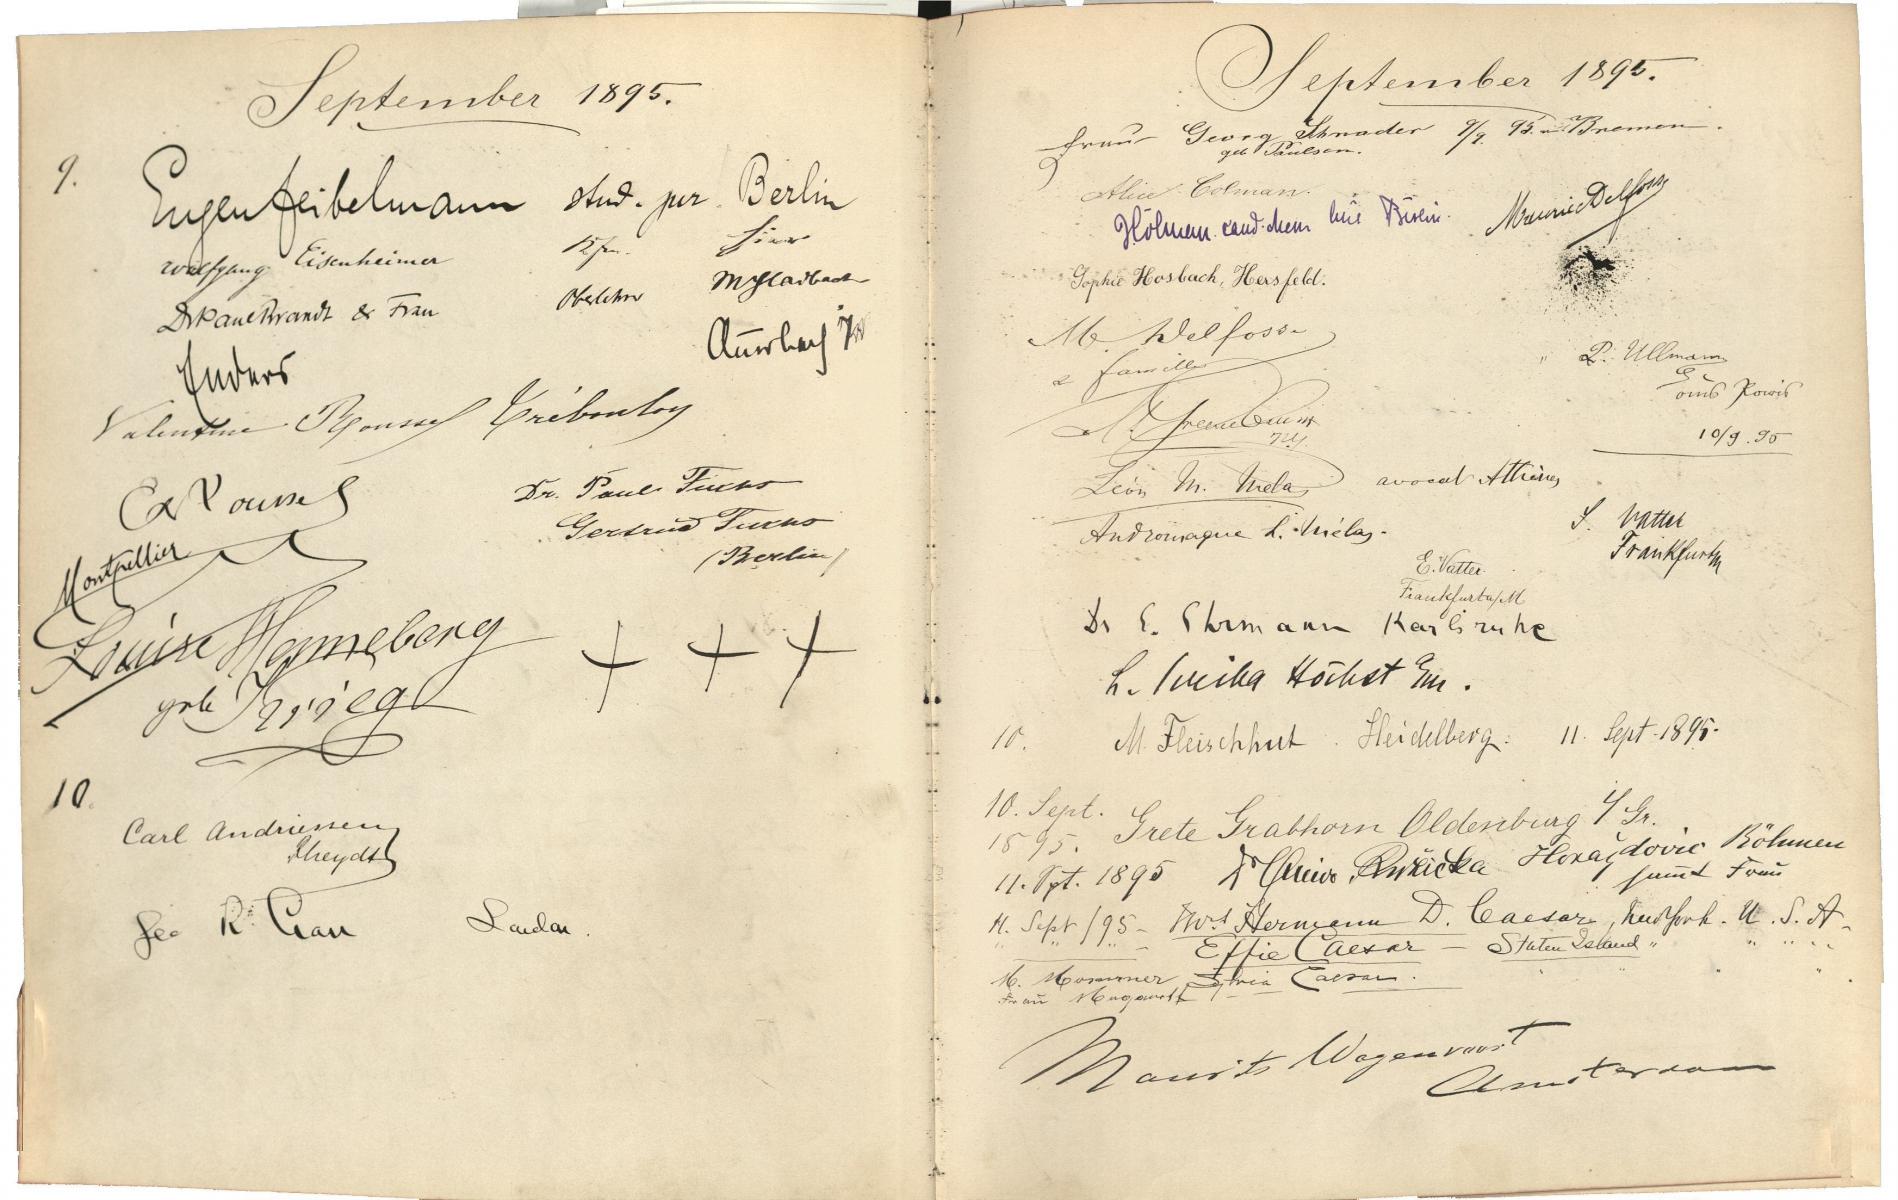 September 1895.
9.
Eugen Feibelmann stud. jur. Berlin
Wolfgang Eisenheimer Kfm. hier
Dr Paul Brandt & Frau Oberlehrer MGladbach
Enders Auerbach i/V
Valentine Roussel Trébouloy
Ed Roussel
Montpellier
Dr. Paul Fuchs
Gertrud Fuchs
(Berlin)
Louise Henneberg
geb Krieg
10.
Carl Andriessen
Rheydt
Geo London.
September 1895.
Frau Georg Schrader 9/9 95. Bremen.
geb Paulsen.
9
Alice Colman.
Holman. cand. chem. Berlin.
Maurice Delfosse
Sophie Hosbach, Hersfeld.
M. Delfosse
& famille
P. Ullmann
10/9. 95
Léon M. Mélas avocat Athènes
Andromaque L. Mélas.
S. Vatter
Frankfurt/M
E. Vatter.
Frankfurt a/M
Dr E. Ehrmann Karlsruhe
L. Höchst
10. M. Fleischhut. Heidelberg. 11. Sept. 1895.
10. Sept.
1895. Grete Grabhorn Oldenburg i/Gr.
11. Spt. 1895 Dr Růžička Horaždovic Böhmen
sammt Frau
11. Sept /95 - Mrs Hermann D. Caesar, New York. U. S. A.
" " Effie Caesar - Staten Island " " " "
M. Mommer Caesar.
Frau
Maurits Wagenvoort
Amsterdam